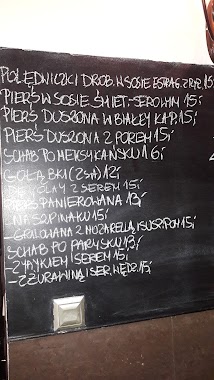 POLĘDNICZKI DROB. W SOSIE ESTRAG. Z RYŻ. 15,-
PIERŚ W SOSIE ŚMIET.-SEROWYM 15,-
PIERŚ DUSZONA W BIAŁEJ KAP. 15,-
PIERŚ DUSZONA Z POREM 15,-
SCHAB PO MEKSYKAŃSKU 16,-
GOŁĄBKI (2szt) 12,-
Z SEREM 15,-
PIERŚ PANIEROWANA 13,-
NA SZPINAKU 15,-
GRILOWANA Z MOZARELLĄ I SUSZ. POM 15,-
SCHAB PO PARYSKU 13,-
SEREM 15,-
- Z ŻURAWINĄ I SER. WĘDZ. 15,-